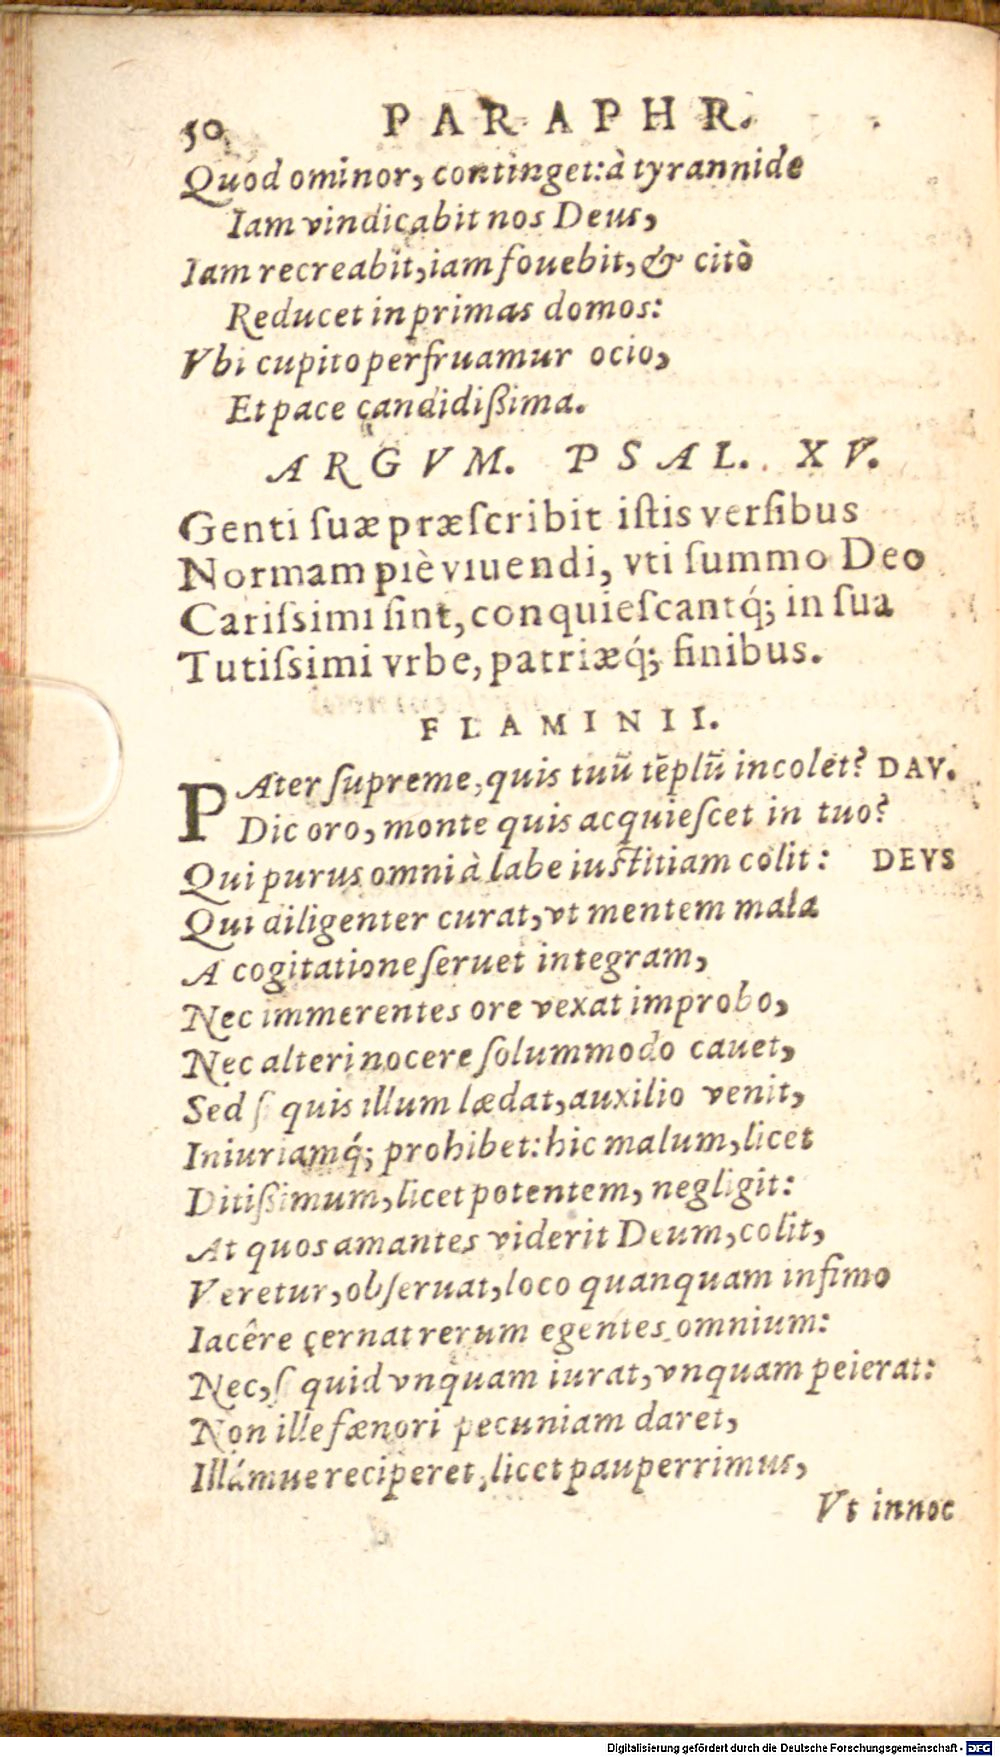 50 PARAPHR.
Quod ominor, continget: à tyrannide
Iam vindicabit nos Deus,
Iam recreabit, iam fouebit, & citò
Reducet in primas domos:
Vbi cupito perfruamur ocio,
Et pace candidißima.
ARGVM. PSAL. XV.
Genti ſuæ præſcribit iſtis verſibus
Normam piè viuendi, vti ſummo Deo
Cariſsimi ſint, conquieſcantq́; in ſua
Tutiſsimi vrbe, patriæq́; finibus.
FLAMINII.
PAter ſupreme, quis tuũ tẽplũ incolet? DAV.
Dic oro, monte quis acquieſcet in tuo?
Qui purus omni à labe iuſtitiam colit: DEVS
Qui diligenter curat, vt mentem mala
A cogitatione ſeruet integram,
Nec immerentes ore vexat improbo,
Nec alteri nocere ſolummodo cauet,
Sed ſ quis illum lædat, auxilio venit,
Iniuriamq́; prohibet: hic malum, licet
Ditißimum, licet potentem, negligit:
At quos amantes viderit Deum, colit,
Veretur, obſeruat, loco quanquam infimo
Iacêre çernat rerum egentes omnium:
Nec, ſ quid vnquam iurat, vnquam peierat:
Non ille fænori pecuniam daret,
Illámue reciperet, licet pauperrimus,
Vt innoc
Digitalisierung gefördert durch die Deutsche Forschungsgemeinschaft - DFG